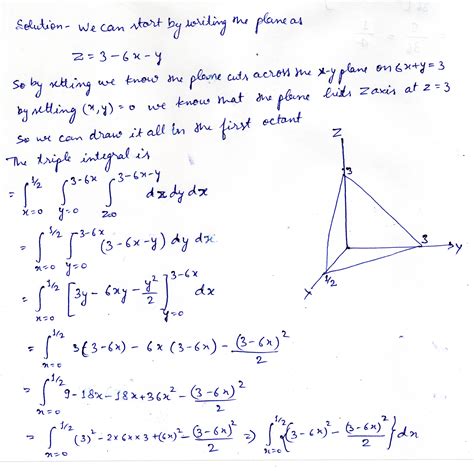 Solution- We can start by writing the plane as
z = 3 - 6x - y
So by setting we know the plane cuts across the x-y plane on 6x+y=3
by setting (x,y)=0 we know that the plane hits z axis at z=3
So we can draw it all in the first octant
The triple integral is
= ∫_{x=0}^{1/2} ∫_{y=0}^{3-6x} ∫_{z=0}^{3-6x-y} dz dy dx
= ∫_{x=0}^{1/2} ∫_{y=0}^{3-6x} (3-6x-y) dy dx
= ∫_{x=0}^{1/2} [3y - 6xy - y²/2]_{y=0}^{3-6x} dx
= ∫_{x=0}^{1/2} 3(3-6x) - 6x(3-6x) - (3-6x)²/2
= ∫_{x=0}^{1/2} 9 - 18x - 18x + 36x² - (3-6x)²/2
= ∫_{x=0}^{1/2} (3)² - 2×6x×3 + (6x)² - (3-6x)²/2 ⇒ ∫_{x=0}^{1/2} {(3-6x)² - (3-6x)²/2} dx
Z
3
3
Y
1/2
X